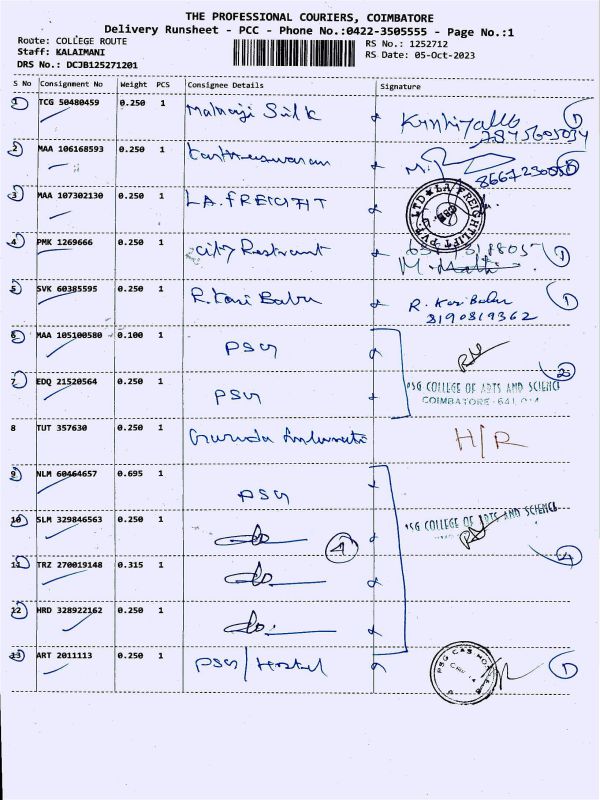 THE PROFESSIONAL COURIERS, COIMBATORE
Delivery Runsheet - PCC - Phone No.:0422-3505555 - Page No.:1
Route: COLLEGE ROUTE
Staff: KALAIMANI
DRS No.: DCJB125271201
RS No.: 1252712
RS Date: 05-Oct-2023
S No Consignment No Weight PCS Consignee Details Signature
1 TCG 50480459 0.250 1 Silk
2 MAA 106168593 0.250 1
3 MAA 107302130 0.250 1 LA. FREIGHT
4 PMK 1269666 0.250 1 City Restrant
5 SVK 60385595 0.250 1 R. Kari Babu R. Kari Babu
8190819362
6 MAA 105100580 0.100 1 PSG
7 EDQ 21520564 0.250 1 PSG PSG COLLEGE OF ARTS AND SCIENCE
COIMBATORE - 641 014
8 TUT 357630 0.250 1 H/R
9 NLM 60464657 0.695 1 PSG
10 SLM 329846563 0.250 1 do PSG COLLEGE OF ARTS AND SCIENCE
4 4
11 TRZ 270019148 0.315 1 do
12 HRD 328922162 0.250 1 do
13 ART 2011113 0.250 1 PSG/Hostel 1